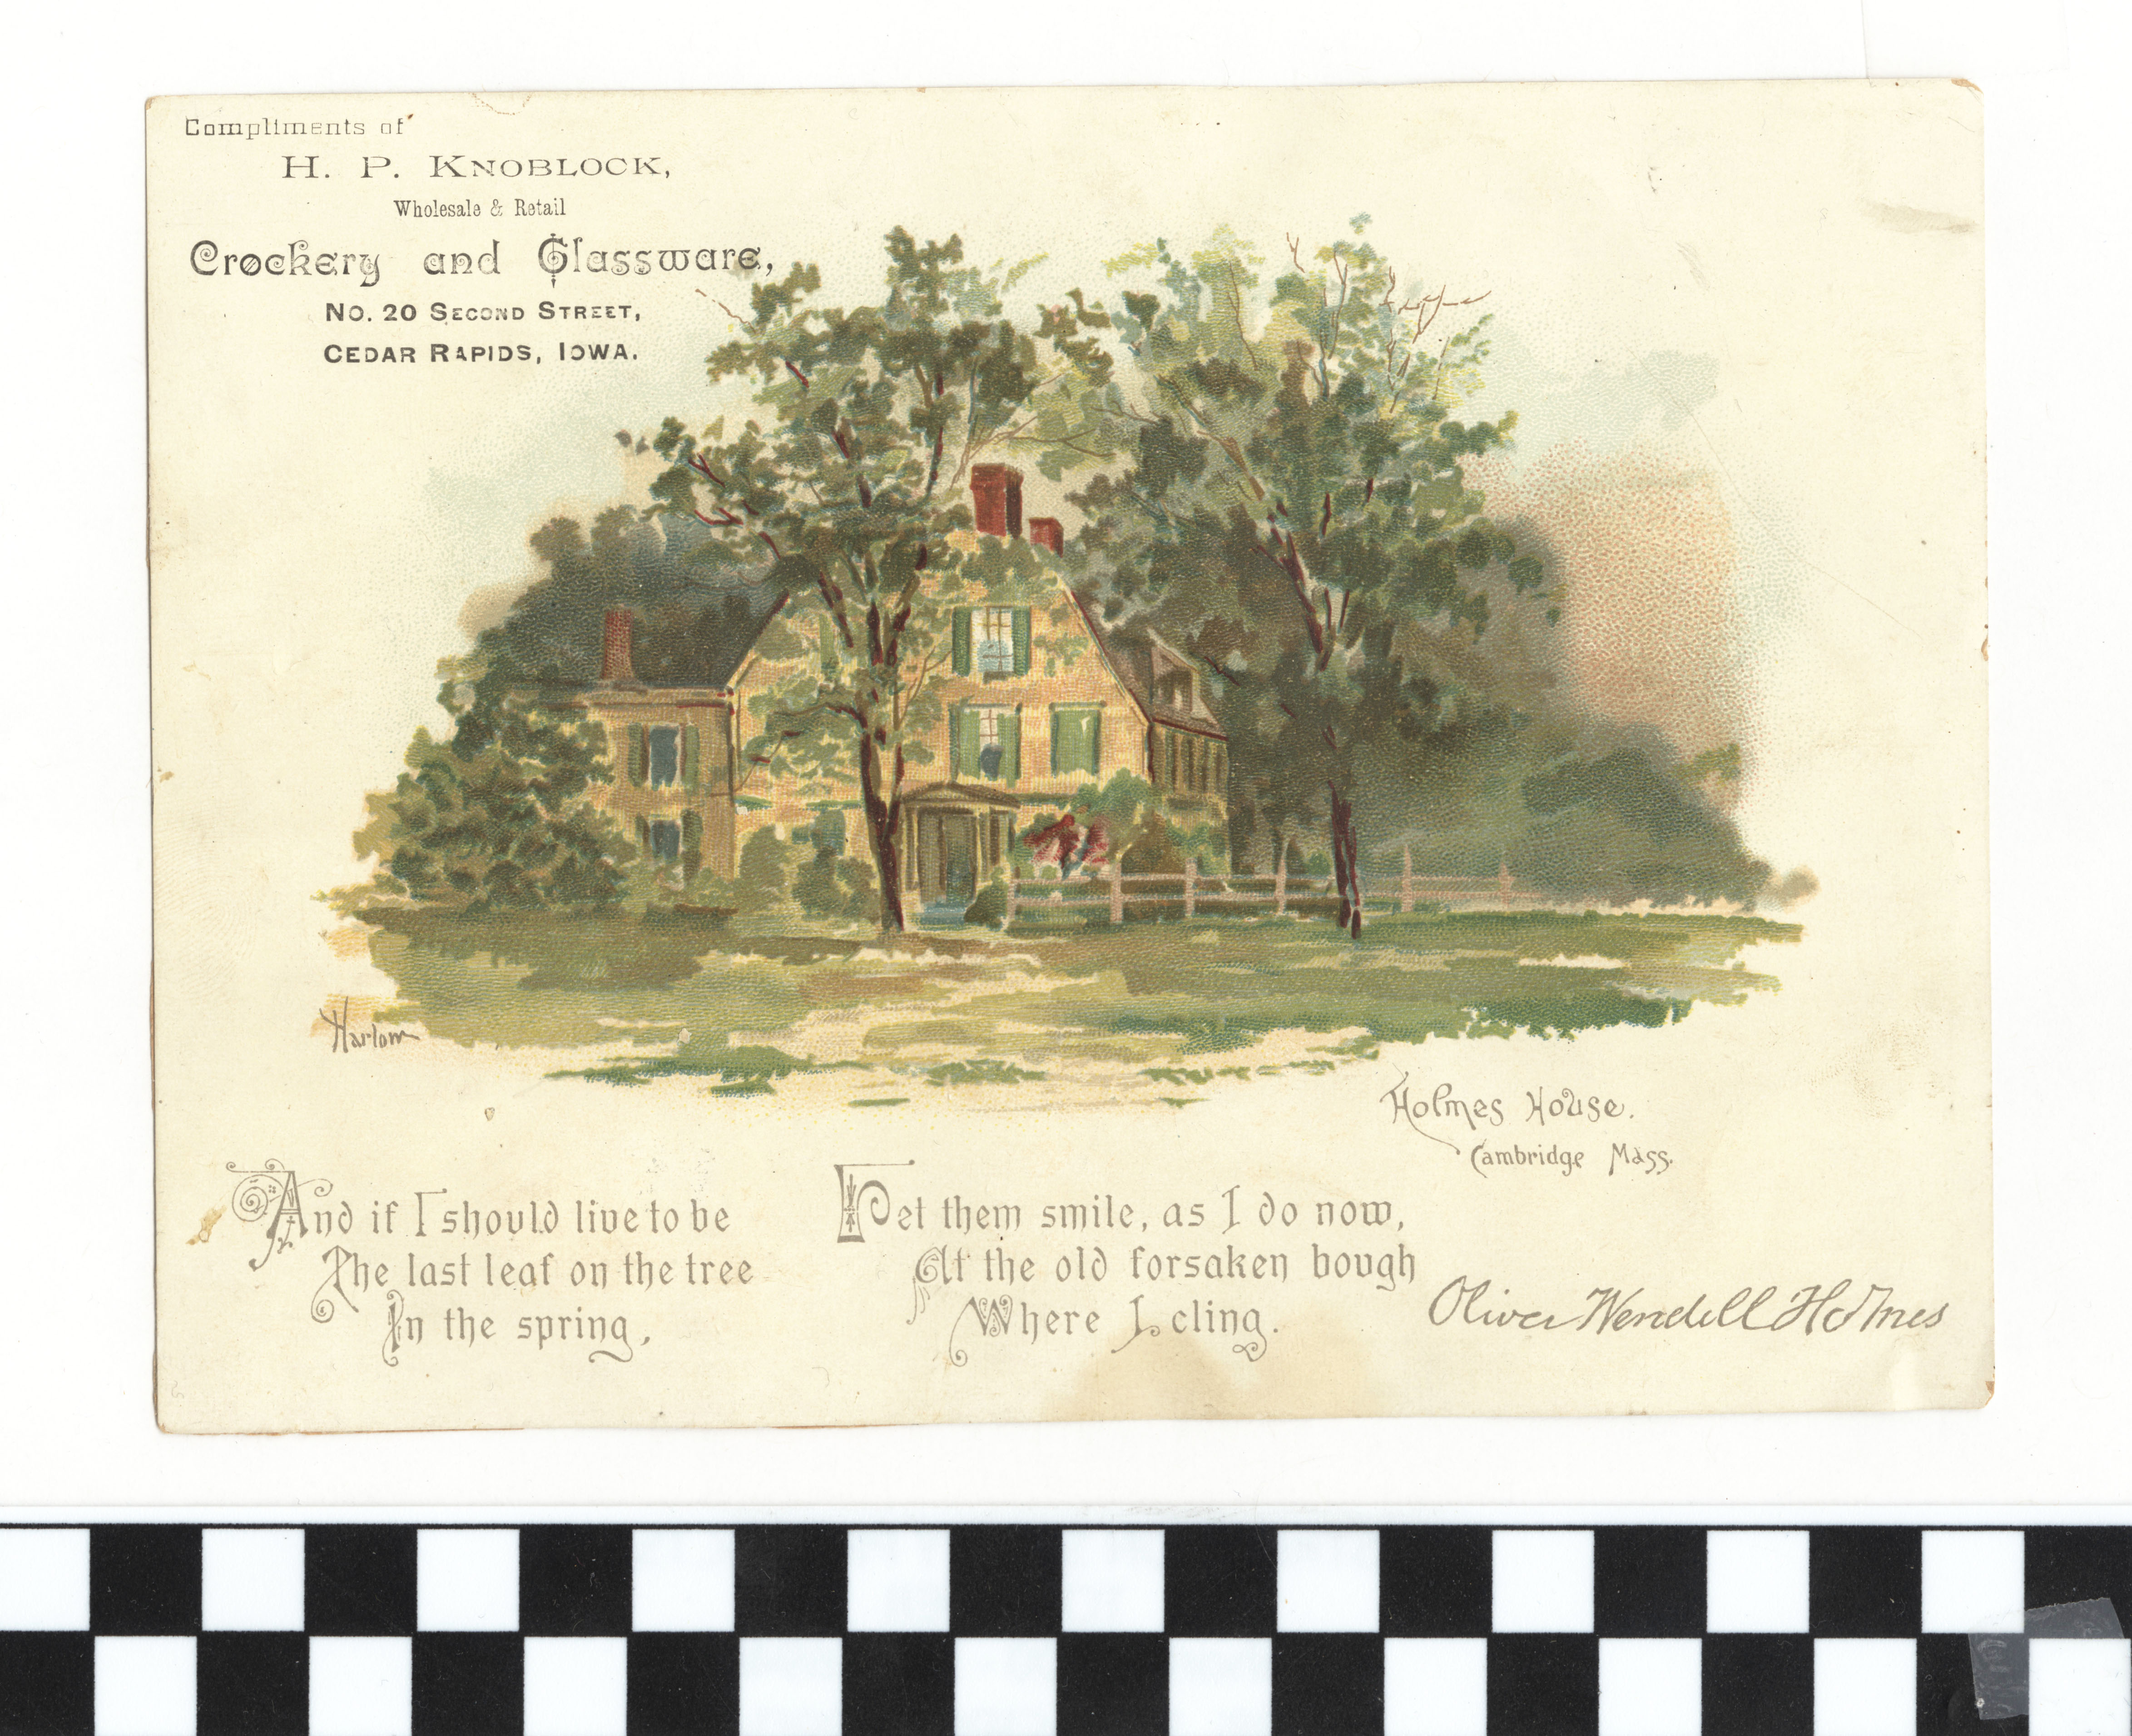 Compliments of
H. P. KNOBLOCK,
Wholesale & Retail
Crockery and Glassware,
No. 20 SECOND STREET,
CEDAR RAPIDS, IOWA.
Harlow
Holmes House.
Cambridge Mass.
And if I should live to be
The last leaf on the tree
In the spring,
Let them smile, as I do now,
At the old forsaken bough
Where I cling.
Oliver Wendell Holmes